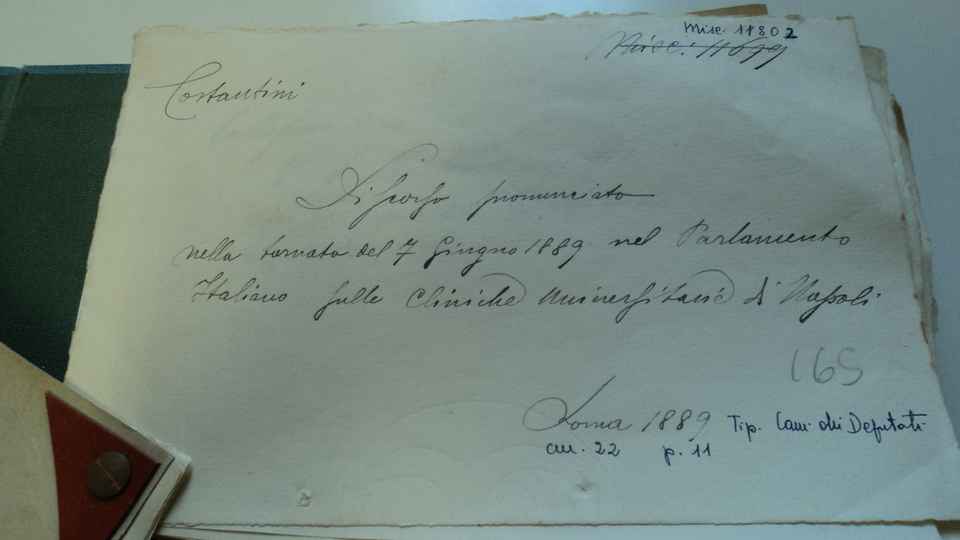 Misc. 11802
Misc. 11679
Costantini
Discorso pronunciato
nella tornata del 7 Giugno 1889 nel Parlamento
Italiano sulle Cliniche Universitarie di Napoli
165
Roma 1889 Tip. Cam. dei Deputati
cm. 22 p. 11